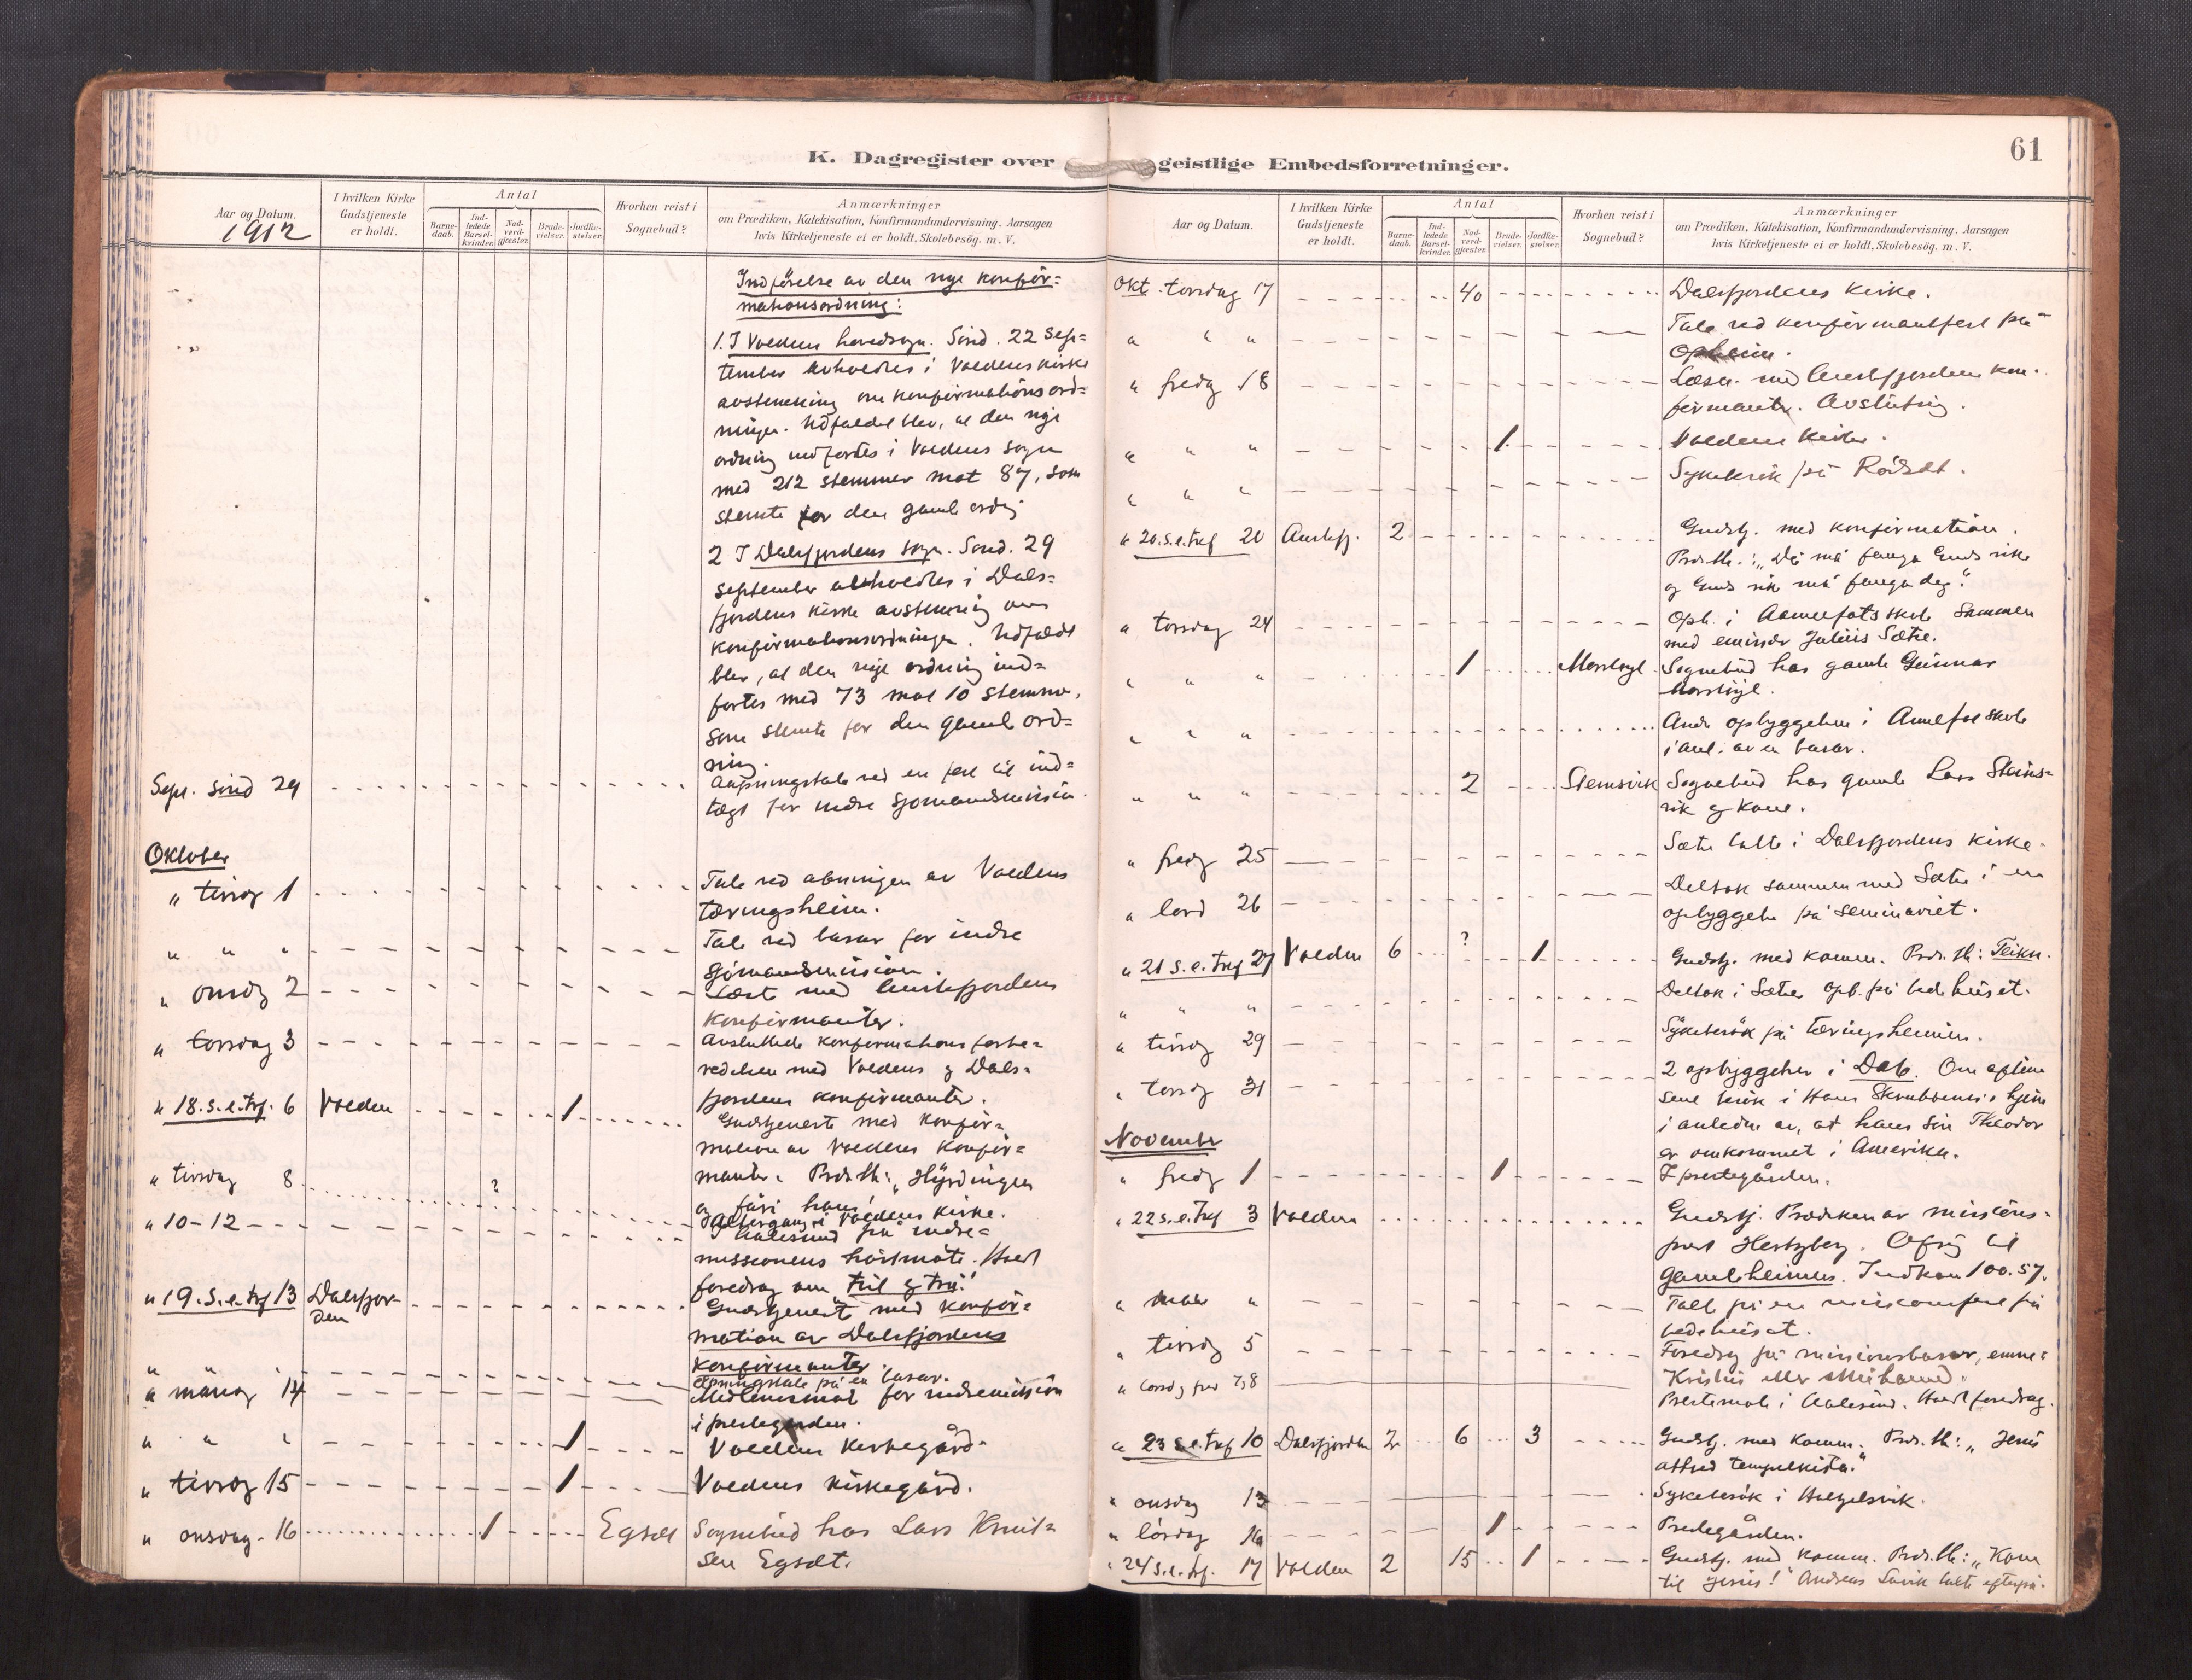 K. Dagregister over geistlige Embedsforretninger.
61
Aar og Datum.
1912
I hvilken Kirke
Gudstjeneste
er holdt.
Antal
Barne-
daab.
Ind-
ledede
Barsel-
kvinder.
Nad-
verd-
gjæster.
Brude-
vielser.
Jordfæ-
stelser.
Hvorhen reist i
Sognebud?
Anmærkninger
om Prædiken, Katekisation, Konfirmandundervisning. Aarsagen
hvis Kirketjeneste ei er holdt, Skolebesög. m. V.
Indförelse av den nye konfir=
mationsordning:
1. I Voldens hovedsogn. Sönd. 22 Sep=
tember avholdtes i Voldens kirke
avstemning om konfirmationsord=
ningen. Udfaldet blev, at den nye
ordning indförtes i Voldens sogn
med 212 stemmer mot 87, som
stemte for den gamle ordning
2 I Dalsfjordens sogn. Sönd. 29
September avholdtes i Dals=
fjordens kirke avstemning om
konfirmationsordningen. Udfaldet
blev, at den nye ordning ind=
förtes med 73 mot 10 stemmer,
som stemte for den gamle ord=
ning.
Sept. sönd 29
Aapningstale ved en fest til ind=
tægt for indre sjömandsmission.
Oktober
" tirsdag 1
Tale ved aabningen av Voldens
tæringsheim.
" " "
Tale ved basar for indre
sjömandsmission.
" onsdag 2
Læst med Austefjordens
konfirmanter.
" torsdag 3
Avsluttede konfirmationsforbe=
redelsen med Voldens og Dals=
fjordens konfirmanter.
" 18. s. e. tref. 6 Volden 1
Gudstjeneste med konfir=
mation av Voldens konfir=
manter. Præd. th: "Hyrdingen
og faari hans"
" tirsdag 8 ?
Altergang i Voldens kirke.
" 10-12
I Aalesund på indre=
missionens höstmöte. Holdt
foredrag om "tvil og tru."
" 19. s. e. tref 13 Dalsfjor-
den
Gudstjeneste med konfir=
mation av Dalsfjordens
konfirmanter.
" " "
Åpningstale på en basar.
" mandag 14
Medlemsmöte for indremission
i prestegården.
" " " 1 Voldens kirkegård.
" tirsdag 15 1 Voldens kirkegård.
" onsdag 16 1 Egset Sognebud hos Lars Knut=
sen Egset.
Aar og Datum.
I hvilken Kirke
Gudstjeneste
er holdt.
Antal
Barne-
daab.
Ind-
ledede
Barsel-
kvinder.
Nad-
verd-
gjæster.
Brude-
vielser.
Jordfæ-
stelser.
Hvorhen reist i
Sognebud?
Anmærkninger
om Prædiken, Katekisation, Konfirmandundervisning. Aarsagen
hvis Kirketjeneste ei er holdt, Skolebesög. m. V.
Okt. torsdag 17 40 Dalsfjordens kirke.
" " " Tale ved konfirmantfest på
Opheim.
" fredag 18 Læsn. med Austefjordens kon-
firmanter. Avslutning.
" " " 1 Voldens kirke.
" " " Sykebesök på Rödset.
" 20. s. e. tref 20 Austefj. 2 Gudstj. med konfirmation.
Præd. th.: "Du må fange Guds rike
og Guds rike må fange deg."
" torsdag 24 Opb. i Aamelfots skole sammen
med emissær Julius Sætre.
" " " 1 Sognebud hos gamle Gunnar
" " " Anden opbyggelse i Aamelfot skole
i anl. av en basar.
" " " 2 Steinsvik Sognebud hos gamle Lars Steins=
vik og kone.
" fredag 25 Sætre talte i Dalsfjordens kirke.
" lörd 26 Deltok sammen med Sætre i en
opbyggelse på seminariet.
" 21 s. e. tref 27 Volden 6 ? 1 Gudstj. med komm. Præd. th:
" " " Deltok i Sætres opb. på bedehuset.
" tirsdag 29 Sykebesök på tæringsheimen.
" torsdag 31 2 opbyggelser i Dale. Om aftenen
i anledn. av, at hans sön Theodor
er omkommet i Amerika.
November
" fredag 1 1 I prestegården.
" 22 s. e. tref 3 Volden Gudstj. Prædiken av missions-
prest Hertzberg. Ofring til
Gamleheimen. Indkom 100.57.
" " Talt på en missionsfest på
bedehuset.
" tirsdag 5 Foredrag på missionsbasar, emne:
Kristus eller Muhamed.
" torsdag fred 7,8 Prestemöte i Aalesund. Holdt foredrag.
" 23 s. e. tref 10 Dalsfjorden 2 6 3 Gudstj. med komm. Præd. th: "Jesus
attved tempelkista."
" onsdag 13 Sykebesök i
" lördag 16 1 Prestegården.
" 24 s. e. tref. 17 Volden 2 15 1 Gudstj. med komm. Præd. th: "Kom
til Jesus!" Andreas Lavik talte efterpå.